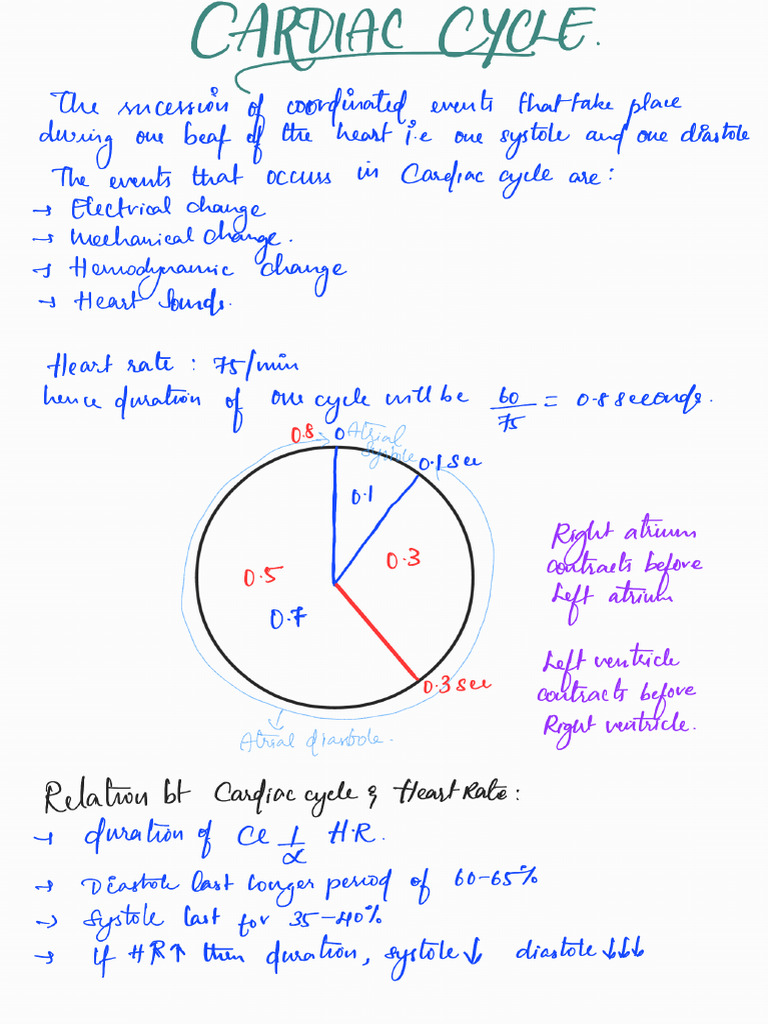 CARDIAC CYCLE.
The sucession of coordinated events that take place
during one beat of the heart i.e one systole and one diastole
The events that occurs in Cardiac cycle are:
→ Electrical change
→ Mechanical change.
→ Hemodynamic change
→ Heart Sounds.
Heart rate : 75/min
hence duration of one cycle will be 60/75 = 0.8 seconds.
0.8 0 Atrial
systole 0.1 sec
0.1
0.3
0.5
0.7
0.3 sec
Atrial diastole.
Right atrium
contracts before
Left atrium
Left ventricle
contracts before
Right ventricle.
Relation bt Cardiac cycle & Heart Rate:
→ duration of CC 1/∝ H.R.
→ Diastole last longer period of 60-65%
→ Systole last for 35-40%
→ If HR↑ then duration, systole↓ diastole↓↓↓